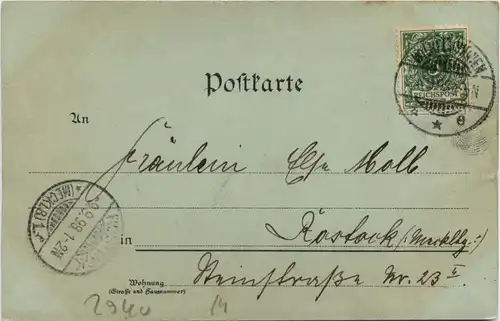 Postkarte
REICHSPOST
An
Fräulein Else Moll
in Rostock (Mecklbg:)
Wohnung Steinstraße Nr. 23 I
(Straße und Hausnummer)
(MECKLB) 1.
9.98. 1-2N
2940 14